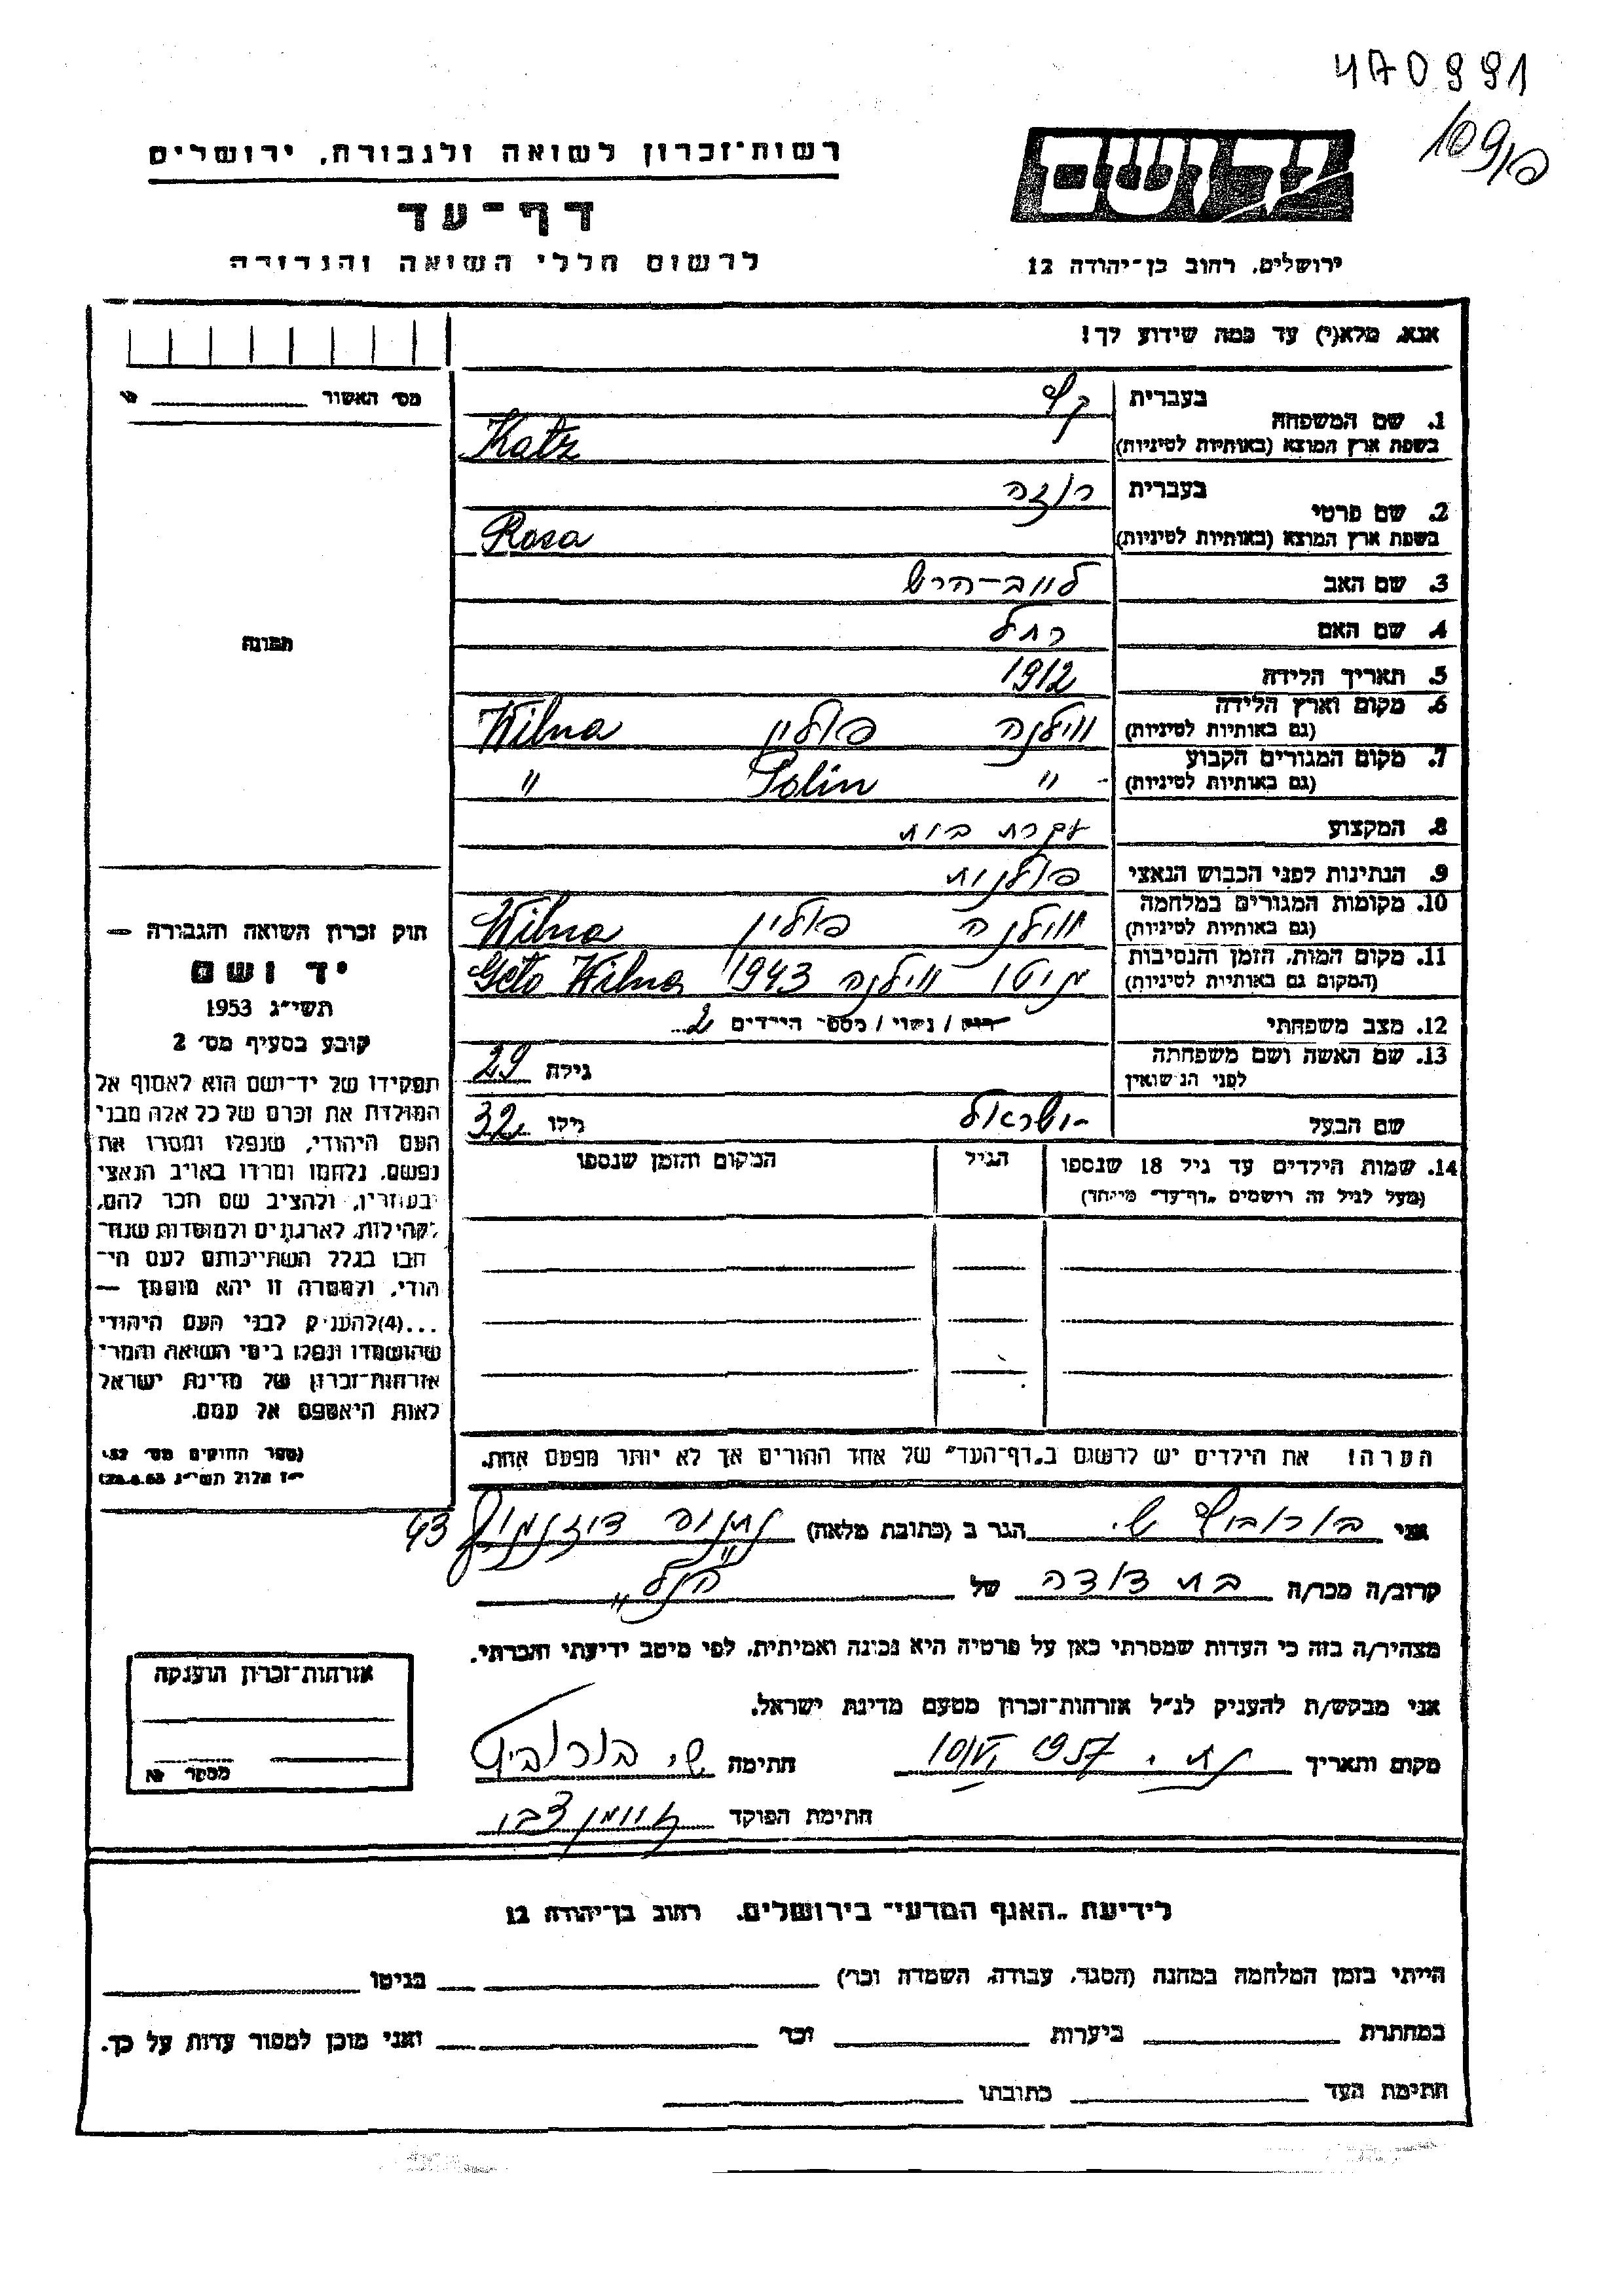 470991
109/פ
רשות־זכרון לשואה ולגבורה, ירושלים
יד ושם
דף־עד
לרשום חללי השואה והגבורה
ירושלים, רחוב בן־יהודה 12
אנא, מלא(י) עד כמה שידוע לך!
מס׳ האשור
1. שם המשפחה
בעברית כץ
בשפת ארץ המוצא (באותיות לטיניות) Katz
2. שם פרטי
בעברית רוזה
בשפת ארץ המוצא (באותיות לטיניות) Rosa
3. שם האב לייב-הירש
4. שם האם רחל
5. תאריך הלידה 1912
6. מקום וארץ הלידה (גם באותיות לטיניות) ווילנה פולין Wilna
7. מקום המגורים הקבוע (גם באותיות לטיניות) " Polin "
8. המקצוע עקרת בית
9. הנתינות לפני הכבוש הנאצי פולנית
10. מקומות המגורים במלחמה (גם באותיות לטיניות) ווילנה פולין Wilna
11. מקום המות, הזמן והנסיבות (המקום גם באותיות לטיניות) גיטו ווילנה 1943 Geto Wilna
12. מצב משפחתי רוק / נשוי / מספר הילדים 2
13. שם האשה ושם משפחתה לפני הנשואין גילה 29
שם הבעל ישראל גילו 32
14. שמות הילדים עד גיל 18 שנספו
(מעל לגיל זה רושמים „דף־עד" מיוחד)
הגיל
המקום והזמן שנספו
תמונה
חוק זכרון השואה והגבורה —
יד ושם
תשי״ג 1953
קובע בסעיף מס׳ 2
תפקידו של יד־ושם הוא לאסוף אל
המולדת את זכרם של כל אלה מבני
העם היהודי, שנפלו ומסרו את
נפשם, נלחמו ומרדו באויב הנאצי
ובעוזריו, ולהציב שם וזכר להם,
לקהילות, לארגונים ולמוסדות שנח־
רבו בגלל השתייכותם לעם הי־
הודי, ולמטרה זו יהא מוסמך —
...(4)להעניק לבני העם היהודי
שהושמדו ונפלו בימי השואה והמרי
אזרחות־זכרון של מדינת ישראל
לאות היאספם אל עמם.
(ספר החוקים מס׳ 132,
י״ז אלול תשי״ג 28.8.53)
הערה! את הילדים יש לרשום ב„דף־העד" של אחד ההורים אך לא יותר מפעם אחת.
אני בורוביץ ש. הגר ב (כתובת מלאה) דיזנגוף 43
קרוב/ה מכר/ה בת דודה של "הנ״ל"
מצהיר/ה בזה כי העדות שמסרתי כאן על פרטיה היא נכונה ואמיתית, לפי מיטב ידיעתי והכרתי.
אני מבקש/ת להעניק לנ״ל אזרחות־זכרון מטעם מדינת ישראל.
מקום ותאריך 1957 חתימה ש. בורוביץ
חתימת הפוקד
אזרחות־זכרון הוענקה
מספר №
לידיעת „האגף המדעי" בירושלים, רחוב בן־יהודה 12
הייתי בזמן המלחמה במחנה (הסגר, עבודה, השמדה וכו׳) בגיטו
במחתרת ביערות וכו׳ ואני מוכן למסור עדות על כך.
חתימת העד כתובתו